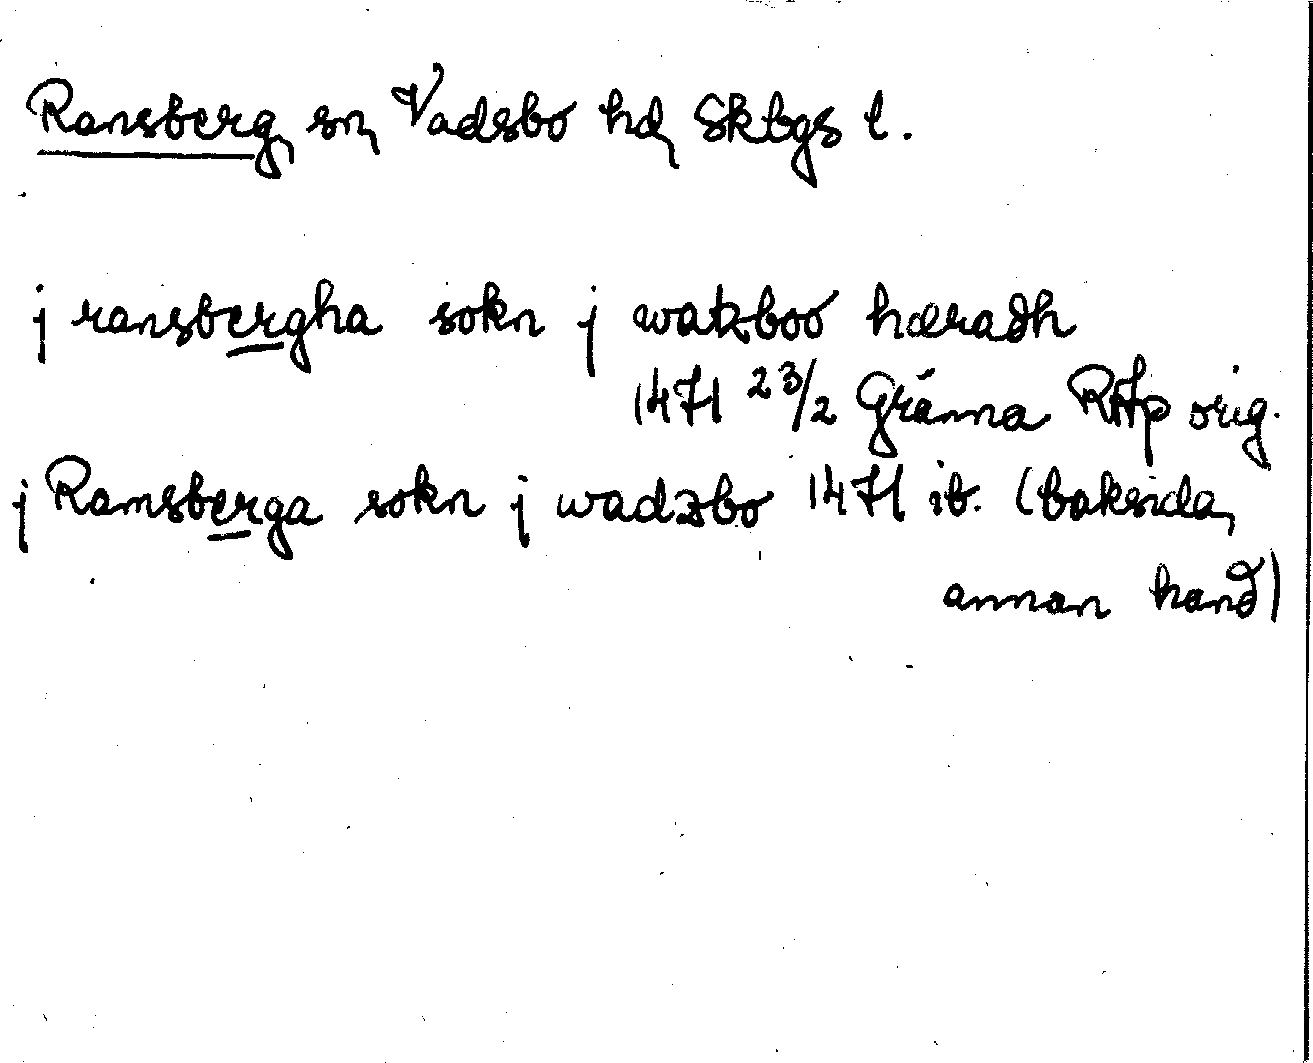 Ransberg, sn, Vadsbo hd, Skbgs l.
j ransbergha sokn j watzboo hæradh
1471 23/2 Gränna RAp orig.
j Ramsberga sokn j wadzbo 1471 ib. (baksida,
annan hand)